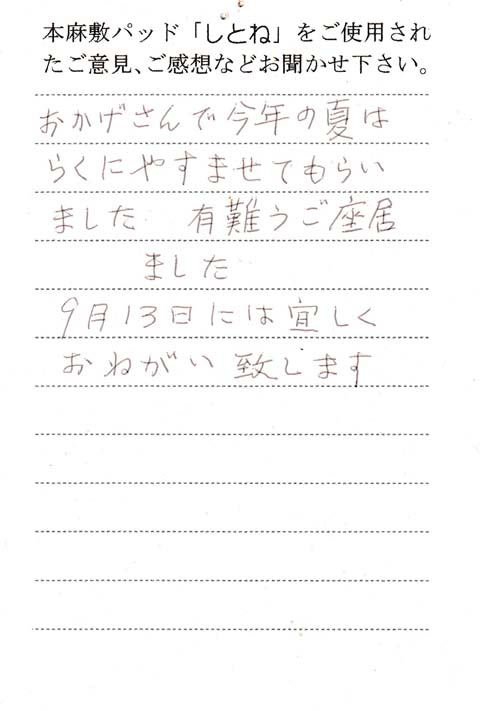 本麻敷パッド「しとね」をご使用され
たご意見、ご感想などお聞かせ下さい。
おかげさんで今年の夏は
らくにやすませてもらい
ました 有難うご座居
ました
9月13日には宜しく
おねがい致します